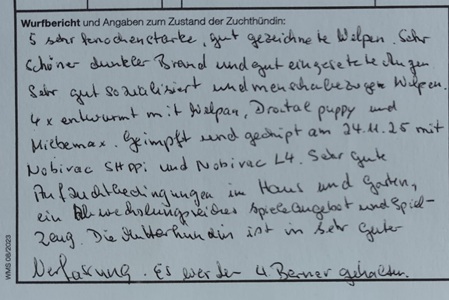 Wurfbericht und Angaben zum Zustand der Zuchthündin:
5 sehr knochenstarke, gut gezeichnete Welpen. Sehr
schöner dunkler Brand und gut eingesetzte Augen.
Sehr gut sozialisiert und menschenbezogene Welpen.
4x entwurmt mit Welpan, Drontal puppy und
Milbemax. Geimpft und gechipt am 24.11.25 mit
Nobivac SHPPi und Nobivac L4. Sehr gute
Aufzuchtbedingungen im Haus und Garten,
ein abwechslungsreiches Spieleangebot und Spiel-
zeug. Die Mutterhündin ist in sehr guter
Verfassung. Es werden 4 Berner gehalten.
WMS 06/2023